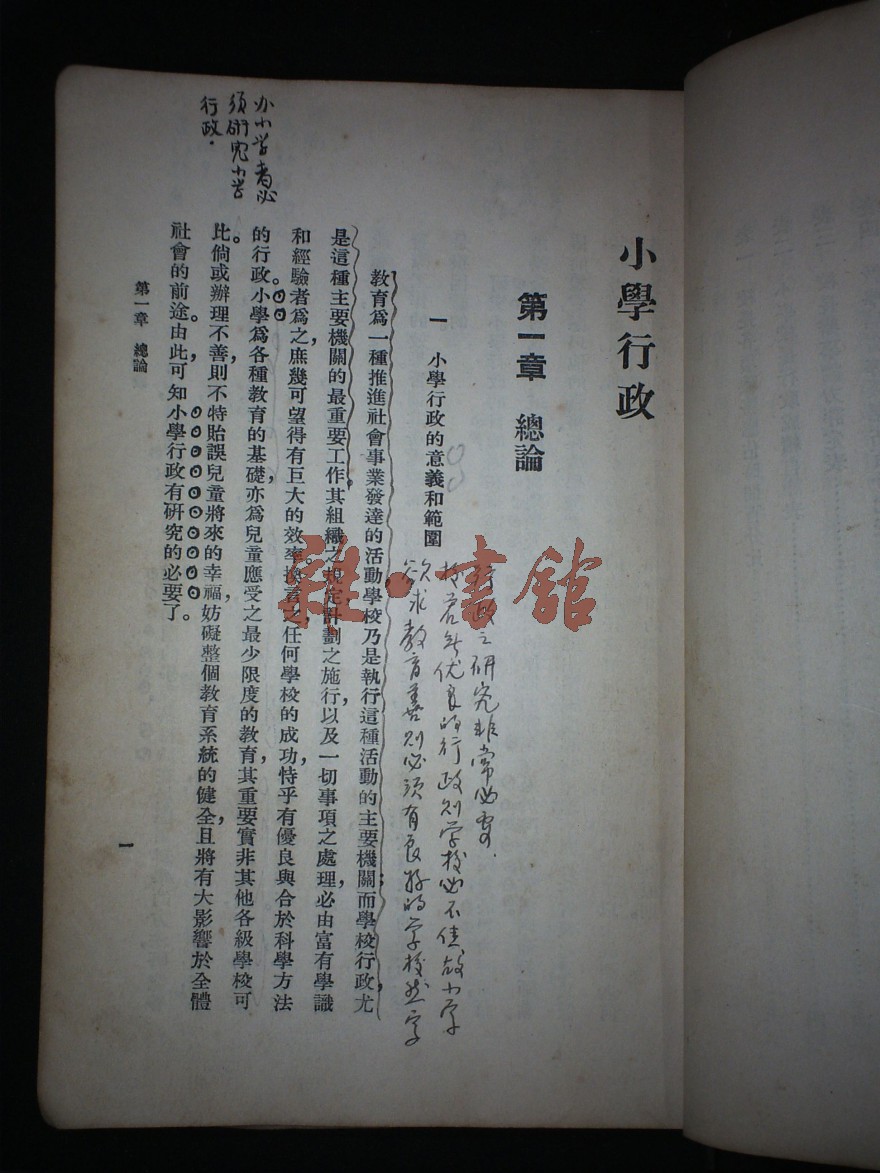 小學行政
第一章 總論
一 小學行政的意義和範圍
欲求教育善则必须有良好的学校然学
校若无优良的行政则学校必不佳故小学
行政之研究非常必要.
教育爲一種推進社會事業發達的活動,學校乃是執行這種活動的主要機關;而學校行政,尤
是這種主要機關的最重要工作。其組織之規定,計劃之施行,以及一切事項之處理,必由富有學識
和經驗者爲之,庶幾可望得有巨大的效率。換言之,任何學校的成功,恃乎有優良與合於科學方法
的行政。小學爲各種教育的基礎,亦爲兒童應受之最少限度的教育,其重要實非其他各級學校可
比。倘或辦理不善,則不特貽誤兒童將來的幸福,妨礙整個教育系統的健全,且將有大影響於全體
社會的前途。由此,可知小學行政有研究的必要了。
办小学者必
须研究小学
行政.
第一章 總論
一
雜·書館